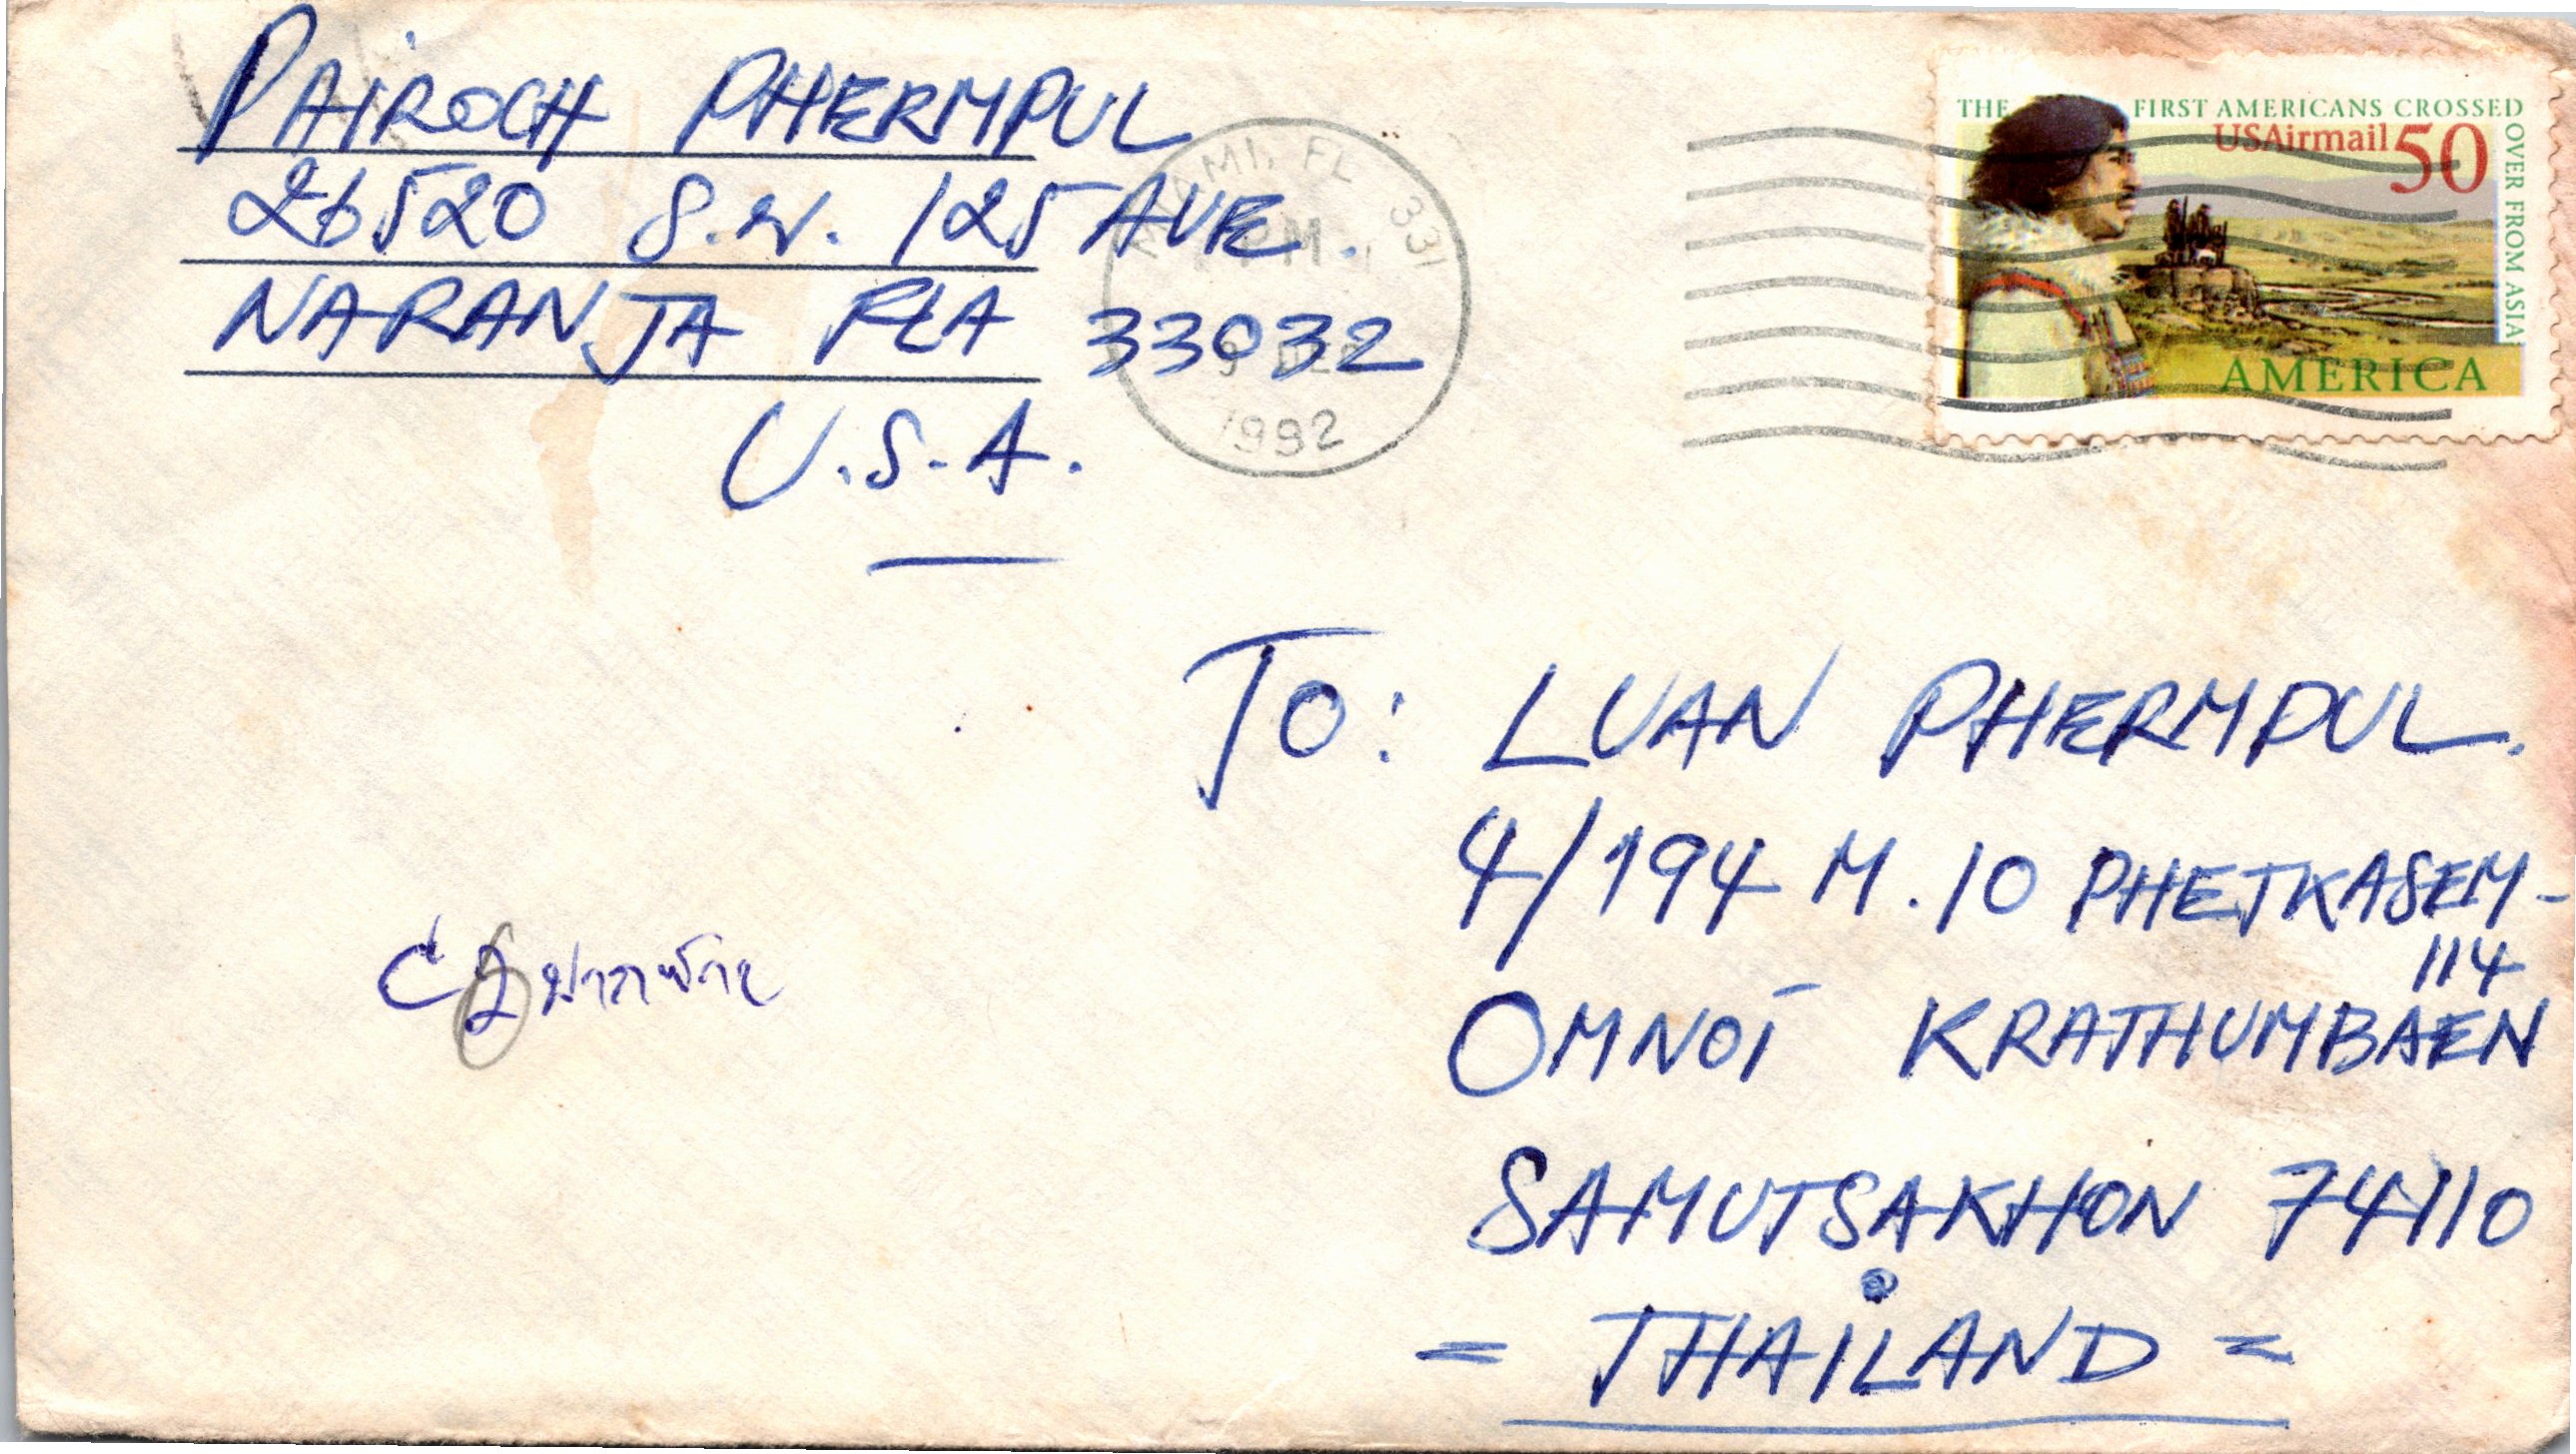 PAIROCH PHERMPUL
26520 S.W. 125 AVE.
NARANJA FLA 33032
U.S.A.
MIAMI, FL 331
PM
9 DEC
1992
THE FIRST AMERICANS CROSSED
OVER FROM ASIA
USAirmail 50
AMERICA
TO: LUAN PHERMPUL.
4/194 M.10 PHETKASEM-
114
OMNOI KRATHUMBAEN
SAMUTSAKHON 74110
= THAILAND =